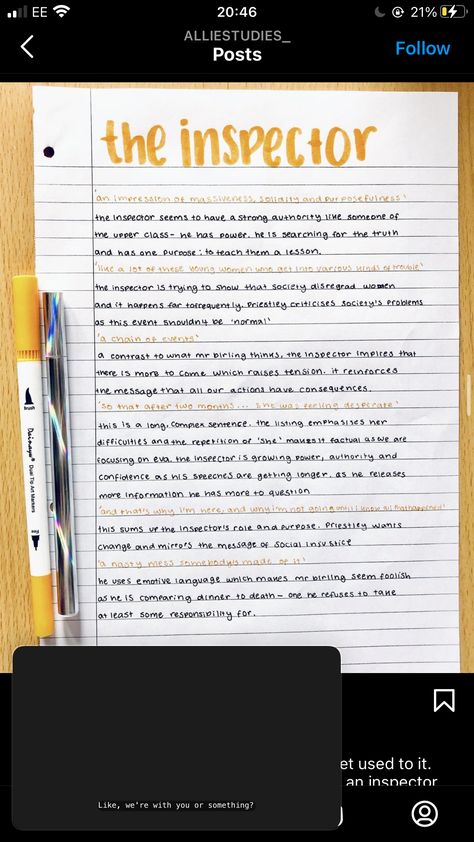 EE 20:46 21%
ALLIESTUDIES_
Posts
Follow
the inspector
'an impression of massiveness, solidity and purposefulness'
the inspector seems to have a strong authority like someone of
the upper class- he has power. he is searching for the truth
and has one purpose: to teach them a lesson.
'like a lot of these young women who get into various kinds of trouble'
the inspector is trying to show that society disregrad women
and it happens far to frequently. priestley criticises society's problems
as this event shouldn't be 'normal'
'a chain of events'
a contrast to what mr birling thinks, the inspector implies that
there is more to come which raises tension. it reinforces
the message that all our actions have consequences.
'so that after two months... she was feeling desperate'
this is a long, complex sentence. the listing emphasises her
difficulties and the repetition of 'she' makes it factual as we are
focusing on eva. the inspector is growing power, authority and
confidence as his speeches are getting longer. as he releases
more information he has more to question
'and that's why i'm here, and why i'm not going until i know all that happened'
this sums up the inspector's role and purpose. priestley wants
change and mirrors the message of social injustice
'a nasty mess somebody's made of it'
he uses emotive language which makes mr birling seem foolish
as he is comparing dinner to death- one he refuses to take
at least some responsibility for.
Brush
Dual Tip Art Markers
et used to it.
an inspector
Like, we're with you or something?